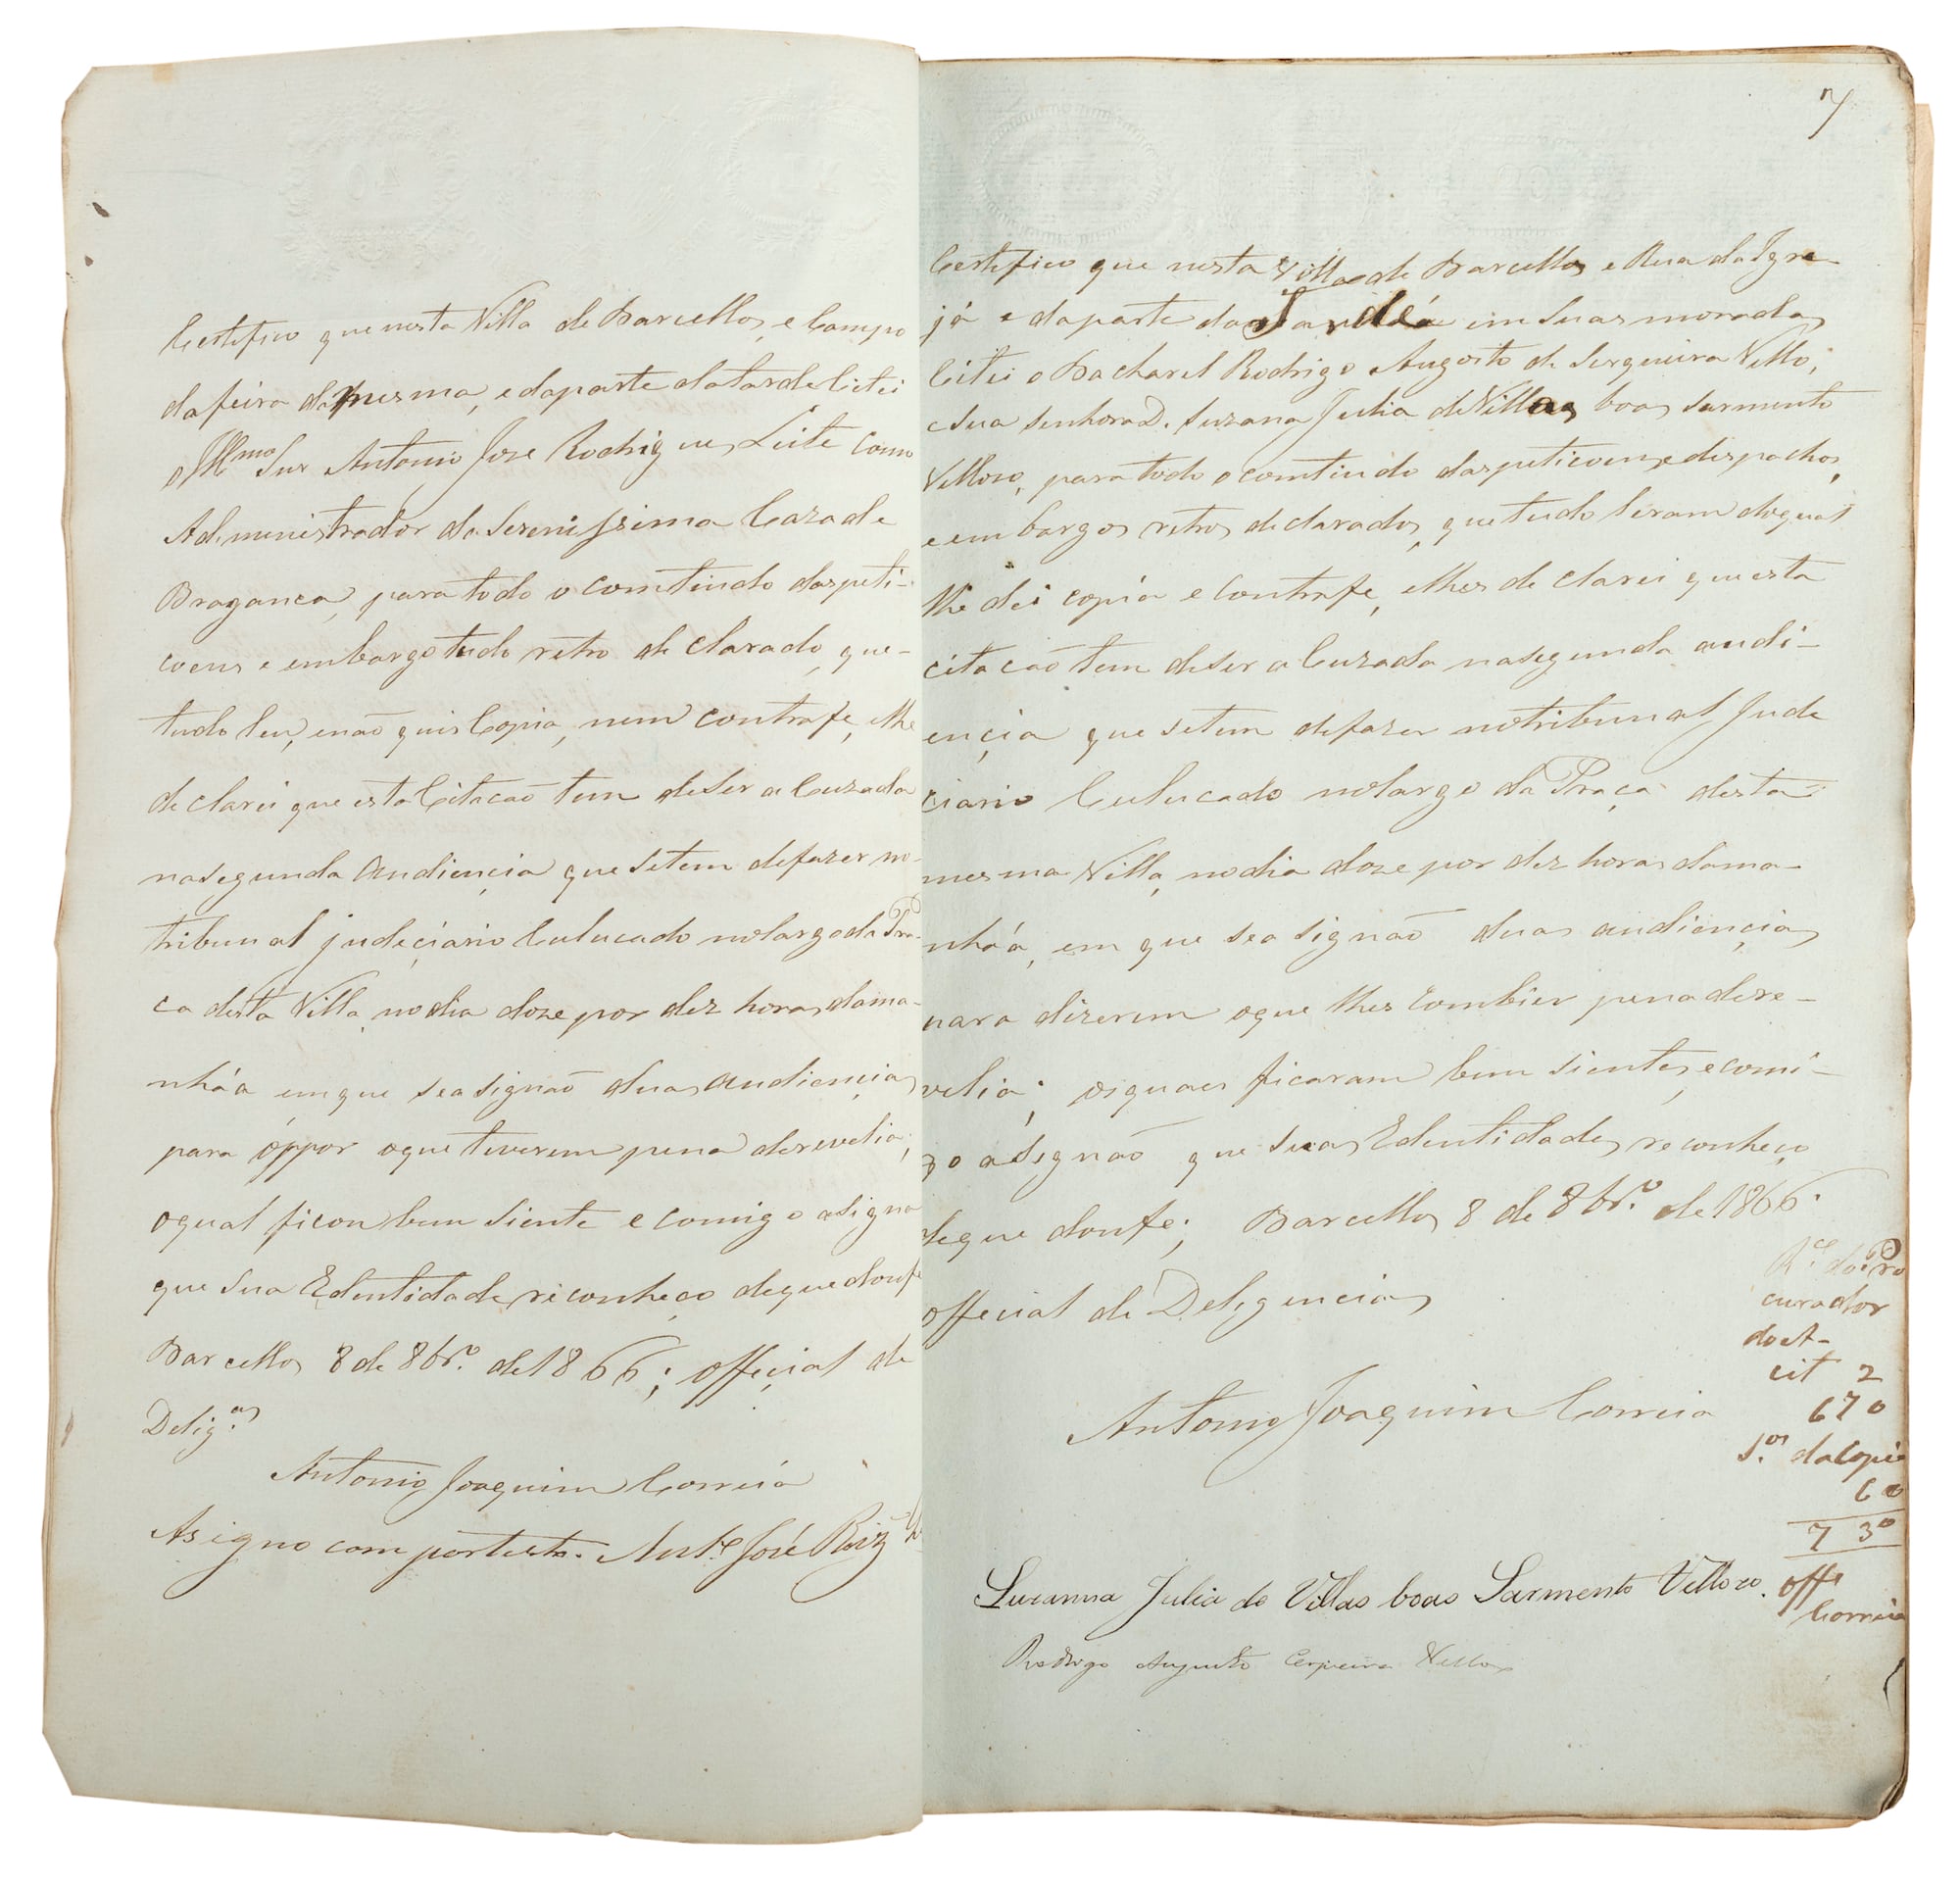 Certefico que nesta Villa de Barcellos, e Campo
da feira da mesma, e da parte da tarde Citei
o Illmo Snr Antonio Jose Rodrigues Leite como
Administrador da Serenissima Caza de
Braganca, para todo o comtiudo das peti-
coens e embargo tudo retro de clarado, que-
tudo leu, e naõ quis Copia, nem contrafe, e lhe
declarei que esta Citacaõ tem de ser a Cuzada
na segunda Audiençia que se tem de fazer no-
tribunal judeçiario Culucado no largo da Pra-
ca desta Villa, no dia doze por dez horas da ma-
nháa em que se a signaõ duas audiençias
para óppor o que tiverem pena de revelia;
o qual ficou bem siente e comigo asigna
que sua Edentidade reconheco de que dou fe
Barcellos 8 de 8brº. de 1866; offeçial de
Deligas.
Antonio Joaquim Correia
Asigno com portesto. Antº José Roiz
7
Certefico que nesta Villa de Barcellos e Rua da Igre
já e da parte da tarde em suas moradas
Citei o Bacharel Rodrigo Augosto de Serqueira Vello,
e sua senhora D. Suzana Julia de Villas boas sarmento
Vellozo, para todo o comtiudo das peticoens e despachos,
e embargos retros declarados, que tudo leram do qual
lhe dei copia e Contrafe, e lhes de clarei que esta
citacaõ tem de ser a Cuzada na segunda audi-
ençia que se tem de fazer no tribunal Jude
ciario Culucado no largo da Praça desta
mesma Villa, no dia doze por dez horas da ma-
nháa, em que se a signaõ duas audiençias
para dizerem o que lhes combier pena de re-
velia; os quaes ficaram bem sientes, e comi-
go asignaõ que suas Edentidades reconheço
de que dou fe; Barcellos 8 de 8brº. de 1866.
offecial de Deligencias
Antonio Joaquim Correia
Rce do Pro
curador
do A-
cit 2
670
da Copia
60
730
offal
Correia
Suzanna Julia de Villas boas Sarmento Vellozo.
Rodrigo Augusto Cerqueira Vellozo